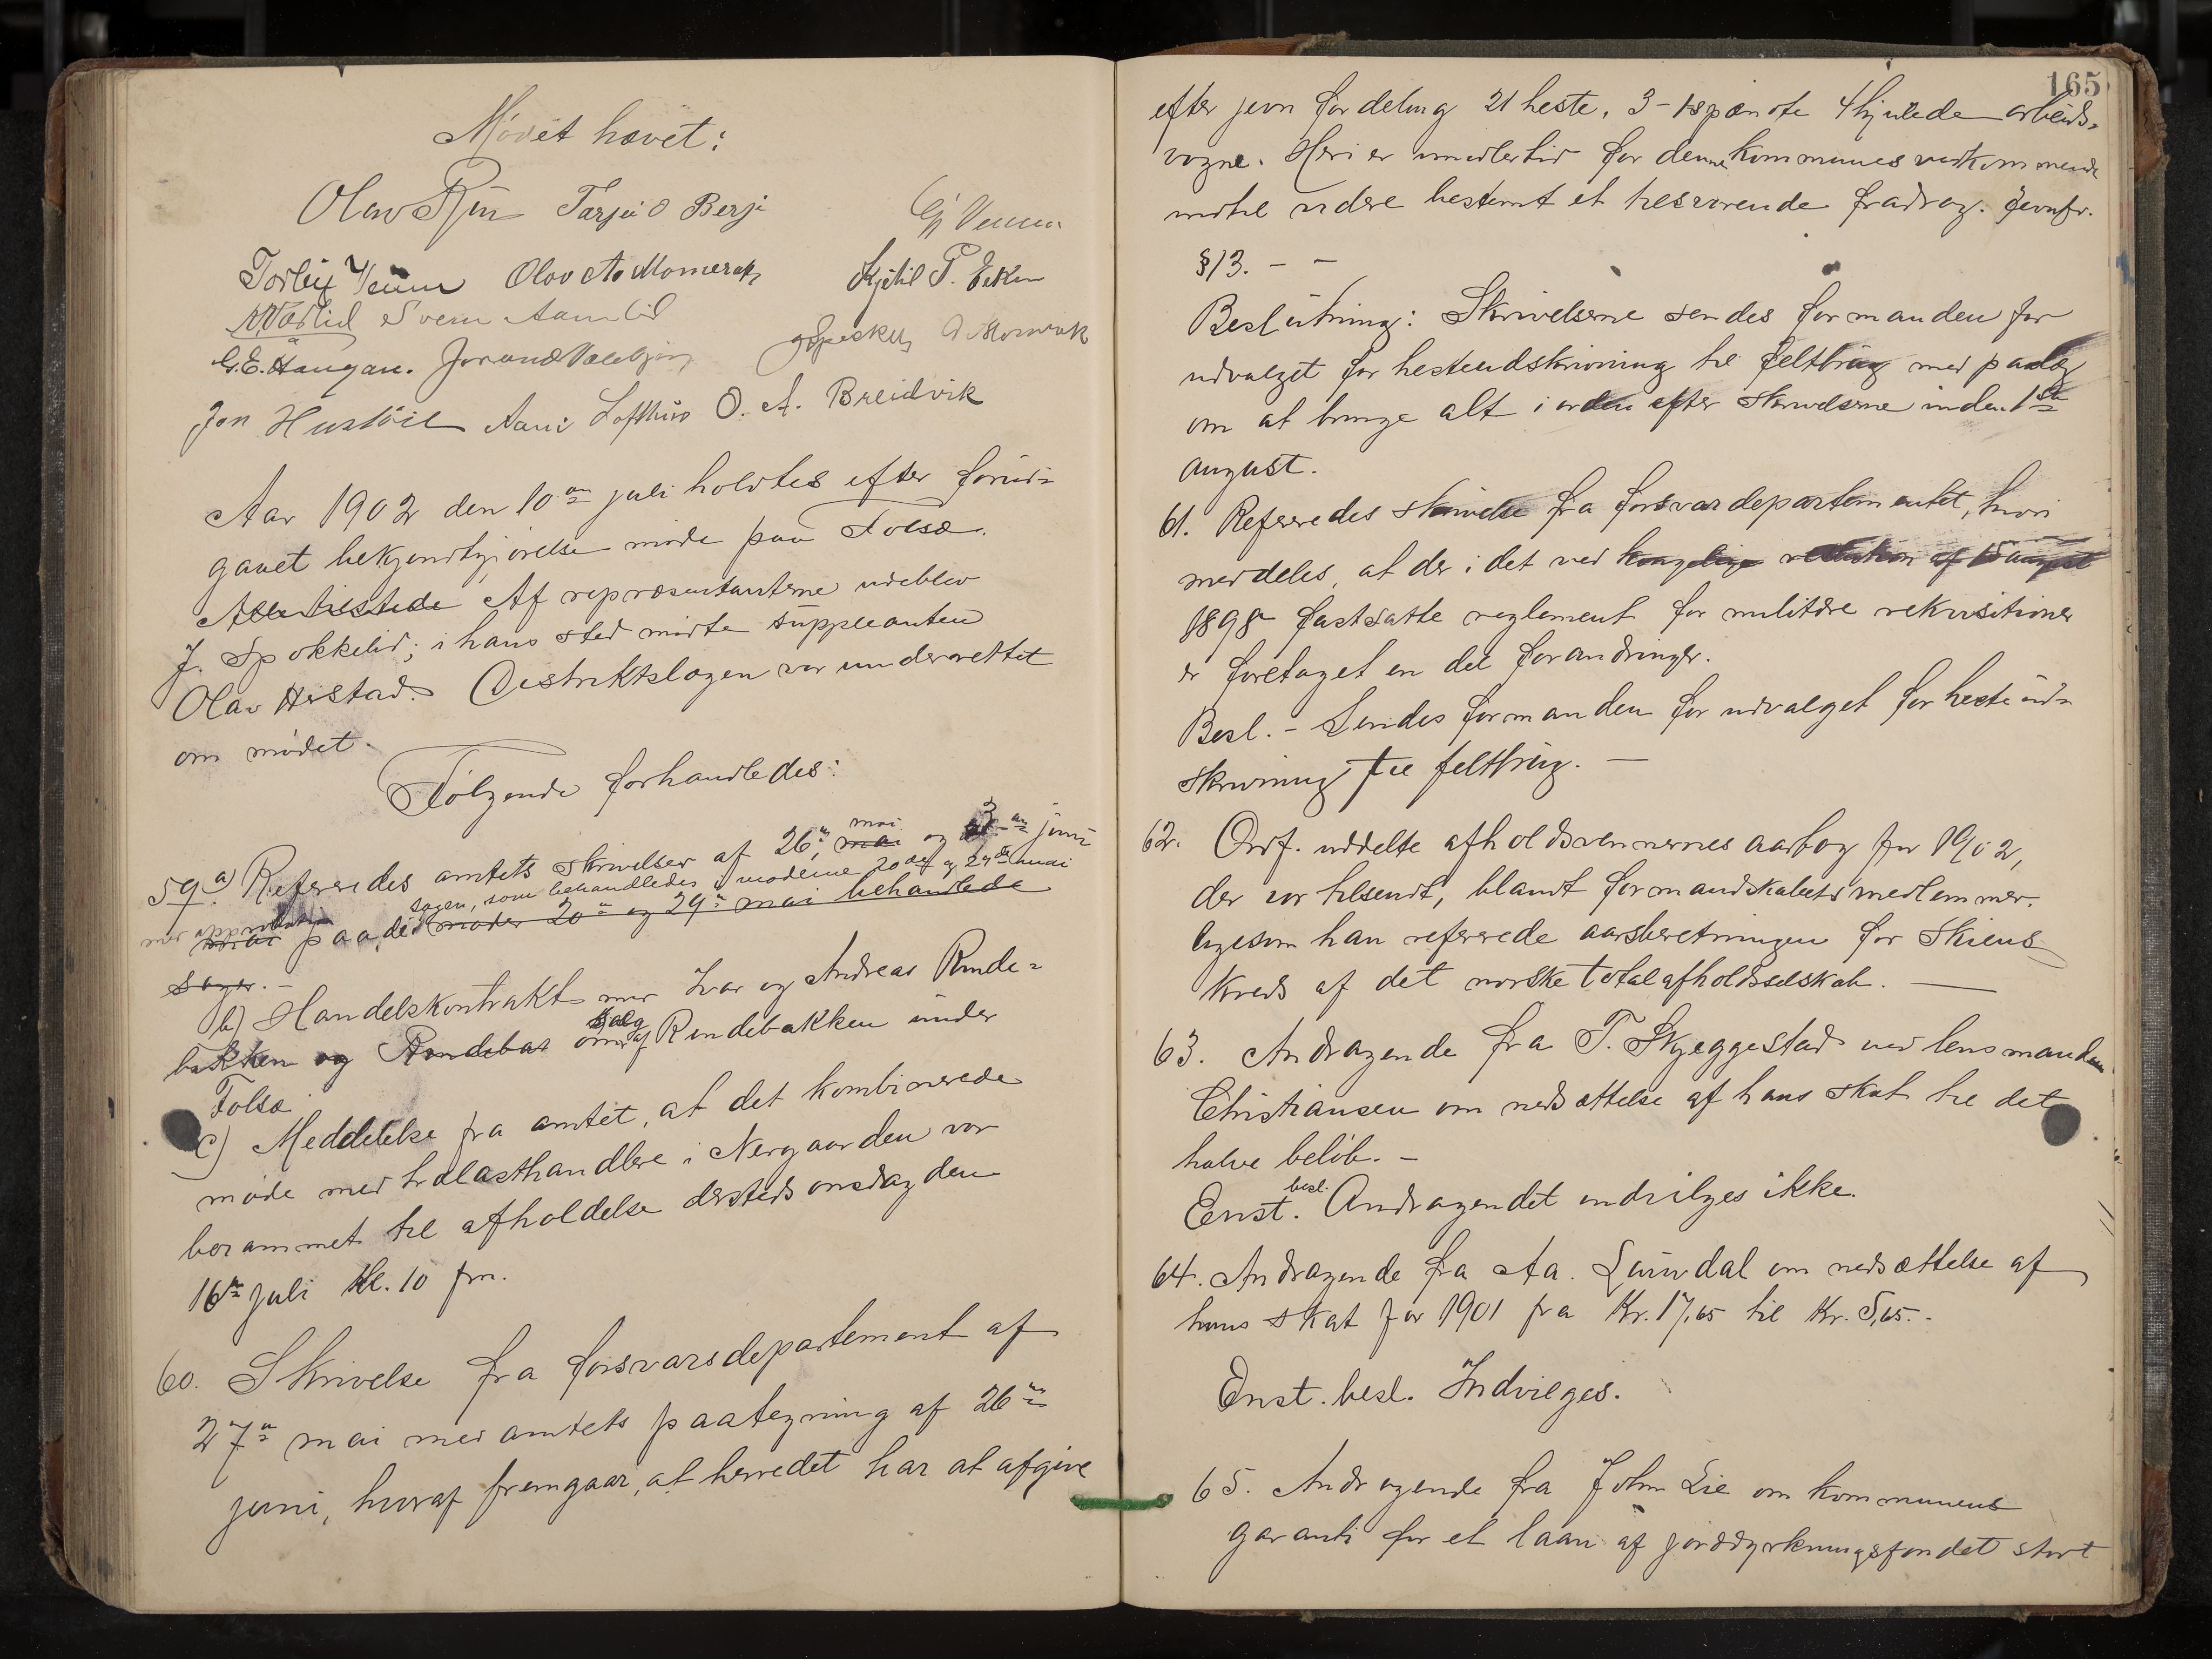 Mødet hævet:
Olav Tarjei O Berge
Torleif Veum Olav As Momerak Kjetil T.
Svein Aamlid
G.E. Haugan. Jorand
Jon Aani Lofthus O. A. Breidvik
Aar 1902 den 10de juli holdtes efter forud-
gaaet bekjendtgjørelse møde paa Folsæ.
Alle tilstede Af repræsentanterne udeblev
J. Spokkelid; i hans sted mødte suppleanten
Olav Distriktslægen var underrettet
om mødet.
Følgende forhandledes:
59. a) Refereredes amtets skrivelser af 26de mai mai og 3die juni
sagen, som behandledes i møderne 20de og 29de mai
med approbation mai paa de i møder 20de og 29de mai behandlede
sager. -
b) Handelskontrakt med Ivar og Andreas Rinde-
bakken og Rindebak om salg af Rindebakken under
Folsæ
c) Meddelelse fra amtet, at det kombinerede
møde med trælasthandlere i Nergaarden var
berammet til afholdelse dersteds onsdag den
16de juli kl. 10 fm.
60. Skrivelse fra forsvarsdepartement af
27de mai med amtets paategning af 26de
juni, hvoraf fremgaar, at herredet har at afgive
165
efter jevn fordeling 21 heste, 3 - 1spændte 4hjulede arbeids-
vogne. Heri er imidlertid for denne kommunes vedkommende
indtil videre bestemt et tilsvarende fradrag. Jevnfr.
§13. - -
Beslutning: Skrivelserne sendes formanden for
udvalget for hesteudskrivning til feltbrug med paalæg
om at bringe alt i orden efter skrivelserne inden 1ste
august.
61. Refereredes skrivelse fra forsvarsdepartementet, hvori
meddeles, at der i det ved kongelige resolution af 15 august
1898 fastsatte reglement for militære rekvisitioner
er foretaget en del forandringer.
Besl. - Sendes formanden for udvalget for hesteud-
skrivning til feltbrug. -
62. Ordf. uddelte afholdsvennernes aarbog for 1902,
der var tilsendt, blandt formandskabets medlemmer.
ligesom han refererede aarsberetningen for Skiens
kreds af det norske totalafholdsselskab. -
63. Andragende fra T. Skjeggestad ved lensmanden
Christiansen om nedsættelse af hans skat til det
halve beløb. -
Enst. besl. Andragendet indvilges ikke.
64. Andragende fra Aa. Lauvdal om nedsættelse af
hans skat for 1901 fra Kr. 17,65 til Kr. 5,65. -
Enst. besl. Indvilges.
65. Andragende fra John Lie om kommunens
garanti for et laan af jorddyrkningsfondet stort